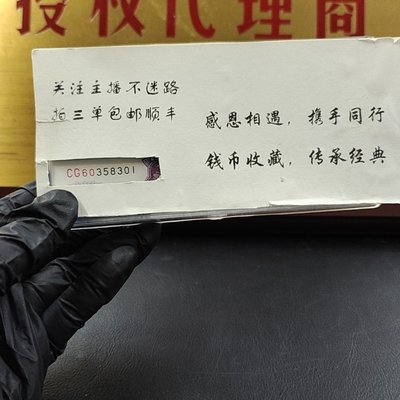 授权代理商
关注主播不迷路
拍三单包邮顺丰
感恩相遇，携手同行
钱币收藏，传承经典
CG60358301